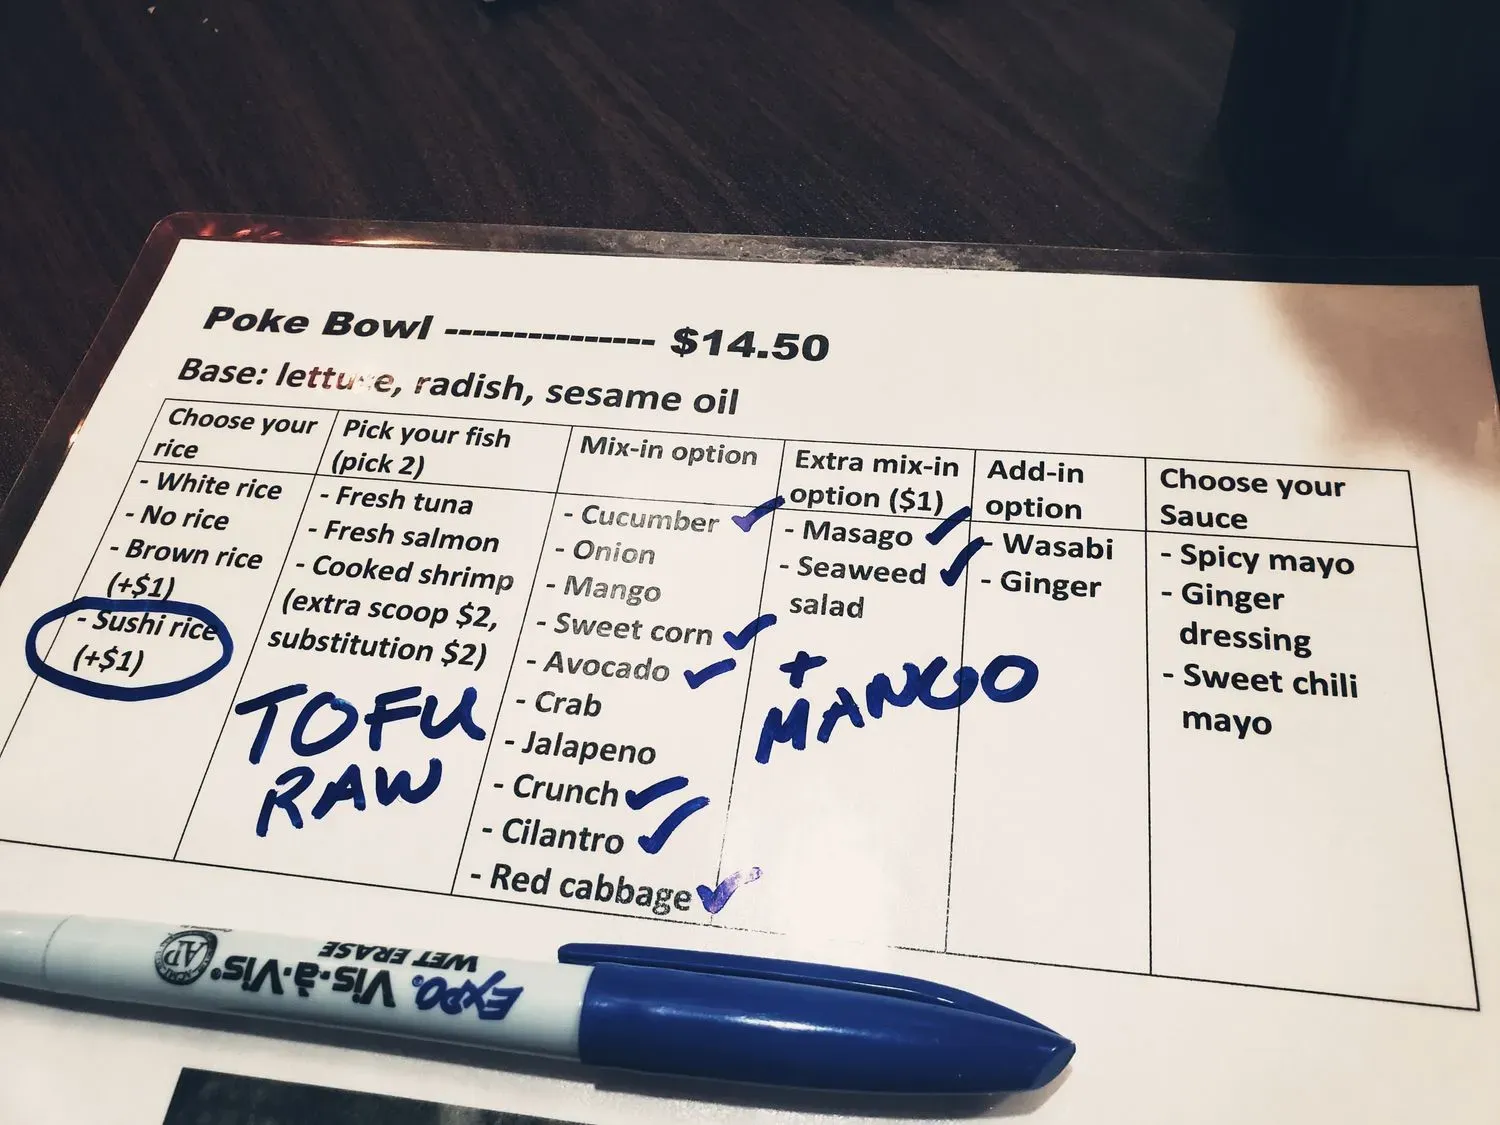 Poke Bowl --------------- $14.50
Base: lettuce, radish, sesame oil
Choose your
rice
- White rice
- No rice
- Brown rice
(+$1)
- Sushi rice
(+$1)
Pick your fish
(pick 2)
- Fresh tuna
- Fresh salmon
- Cooked shrimp
(extra scoop $2,
substitution $2)
TOFU
RAW
Mix-in option
- Cucumber ✓
- Onion
- Mango
- Sweet corn ✓
- Avocado ✓
- Crab
- Jalapeno
- Crunch ✓
- Cilantro ✓
- Red cabbage ✓
Extra mix-in
option ($1)
- Masago ✓
- Seaweed ✓
salad
+
MANGO
Add-in
option
- Wasabi
- Ginger
Choose your
Sauce
- Spicy mayo
- Ginger
dressing
- Sweet chili
mayo
EXPO® Vis·à·Vis®
WET ERASE
AP